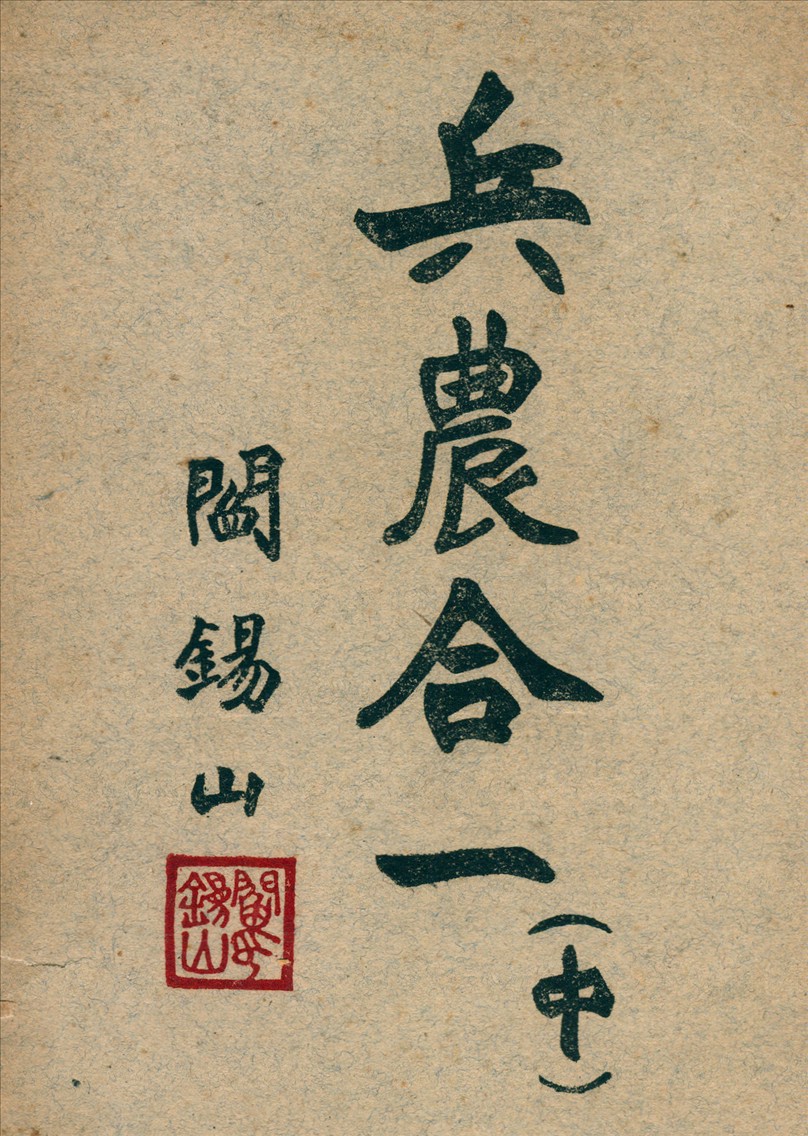 兵農合一
（中）
閻錫山
閻錫山印